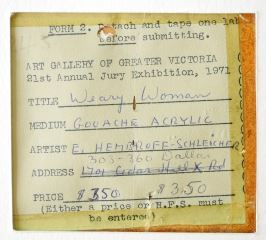 FORM 2. Detach and tape one lab
before submitting.
ART GALLERY OF GREATER VICTORIA
21st Annual Jury Exhibition, 1971
TITLE Weary Woman
MEDIUM GOUACHE ACRYLIC
ARTIST E. HEMBROFF-SCHLEICHER
303-360 Dallas
ADDRESS 1701 Cedar Hill X Rd
PRICE $350 $350
(Either a price or N.F.S. must
be entered)